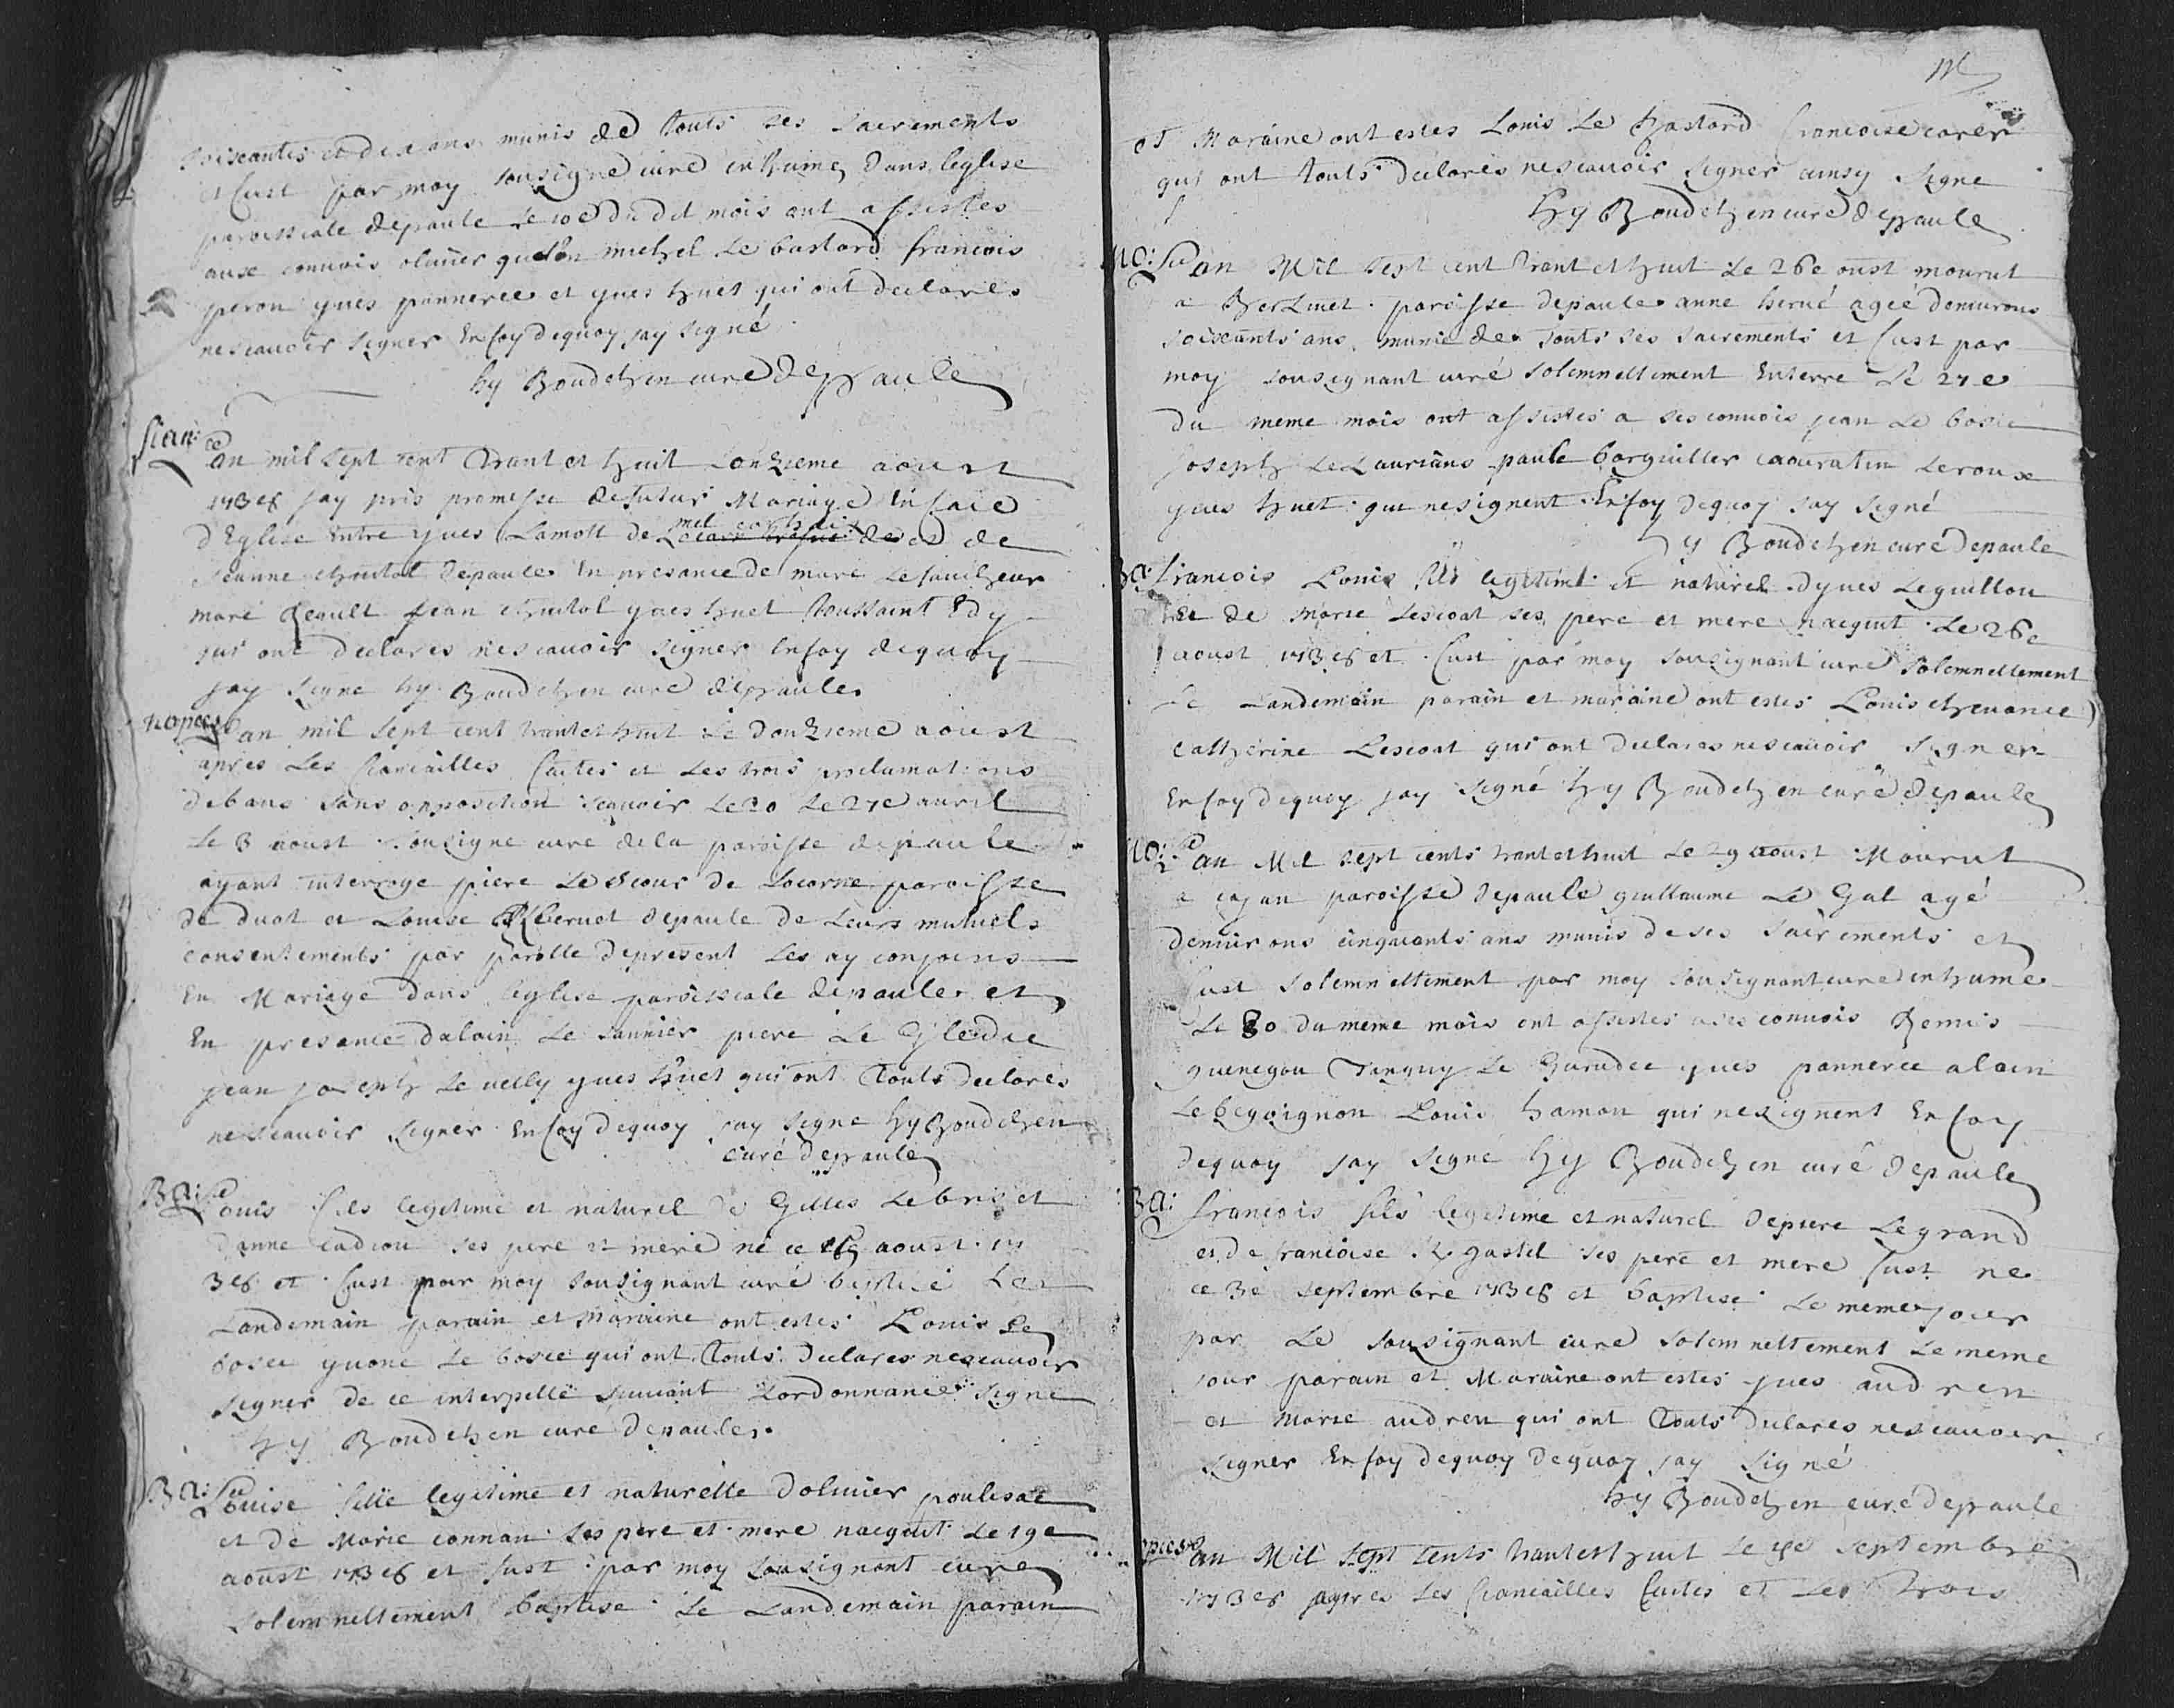 soiscantes et dix ans munis de touts ses sacrements
et fust par moy sousigne curé inhumé dans leglise
paroissiale depaule le 10e du dit mois ont assistes
aux convois olivier michel le bastard francois
peron yves pannerec et yves huet qui ont declarés
nescavoir signer En foy dequoy jay signé
hy Boudehen curé depaule
fian:
Lan mil sept cent trant et huit Lonzieme aoust
1738 jay pris promesse de futur Mariage En face
dEglise Entre yves Lamott de et de
Jeanne depaule En presance de marc
marc jean yves huet toussaint
qui ont declares nescavoir signer En foy dequoy
jay signe hy Boudehen curé depaule
nopces
Lan mil sept cent trant et huit Le douzieme aoust
apres Les fiancailles faites et Les trois proclamations
debans sans opposition scavoir Le 20 Le 27e avril
Le 3 aoust sousigne curé de la paroisse depaule
ayant interroge piere Le Scour de Locarne paroisse
de duot et Louise depaule de Leurs mutuels
consentements par parolle depresent Les ay conjoins
En Mariage dans leglise paroissiale depaule et
En presance dalain Le piere Le Gleduc
jean joseph Le velly yves huet qui ont touts declares
nescavoir signer En foy dequoy jay signe hy Boudehen
curé depaule
Ba:
Louis fils legitime et naturel de Gilles Le bris et
danne cadiou ses pere et mere né ce aoust 17
38 et fust par moy sousignant curé baptisé Le
Landemain parain et Maraine ont estes Louis Le
bosec yvone Le bosec qui ont touts declares nescavoir
signer de ce interpelle suivant Lordonnance signe
hy Boudehen curé depaule
Ba:
Louise fille legitime et naturelle dolivier poulisac
et de Marie connan ses pere et mere nacquit Le 19e
aoust 1738 et fust par moy sousignant curé
solemnellement baptise Le Landemain parain
et Maraine ont estes Louis Le bastard francoise carer
qui ont touts declarés nescavoir signer ainsy signe
hy Boudehen curé depaule
mo:
Lan Mil sept cent trant et huit Le 26e oust mourut
a paroisse depaule anne hervé agée denvirons
soiscants ans munie de touts ses sacrements et fust par
moy sousignant curé solemnellement Enterre Le 27e
du meme mois ont assistes a ses convois jean Le bosec
joseph Le Laurians paule bargulier Le roux
yves huet qui nesignent En foy dequoy jay signé
hy Boudehen curé depaule
Ba:
francois Louis fils legitime et naturel dyves Leguillou
et de Marie Lescoat ses pere et mere nacquit Le 26e
aoust 1738 et fust par moy sousignant curé solemnellement
Le Landemain parain et maraine ont estes Louis chevance
catherine Lescoat qui ont declares nescavoir signer
En foy dequoy jay signé hy Boudehen curé depaule
mo:
Lan Mil sept cents trant et huit Le 29 aoust Mourut
a paroisse depaule guillaume Le Gal agé
denvirons cinquants ans munis de ses sacrements et
fust solemnellement par moy sousignant curé inhumé
Le 30 du meme mois ont assistes a ses convois Remis
guenegou Tanguy Le yves pannerec alain
Le begoignon Louis hamon qui nesignent En foy
dequoy jay signé hy Boudehen curé depaule
Ba:
francois fils legitime et naturel depiere Legrand
et de francoise K gastel ses pere et mere fust né
ce 3e septembre 1738 et baptisé Le meme jour
par Le sousignant curé solemnellement Le meme
jour parain et Maraine ont estes yves audren
et Marie audren qui ont touts declares nescavoir
signer En foy dequoy dequoy jay signé
hy Boudehen curé depaule
Lan Mil sept cents trant et huit Le septembre
1738 apres Les fiancailles faites et Les trois